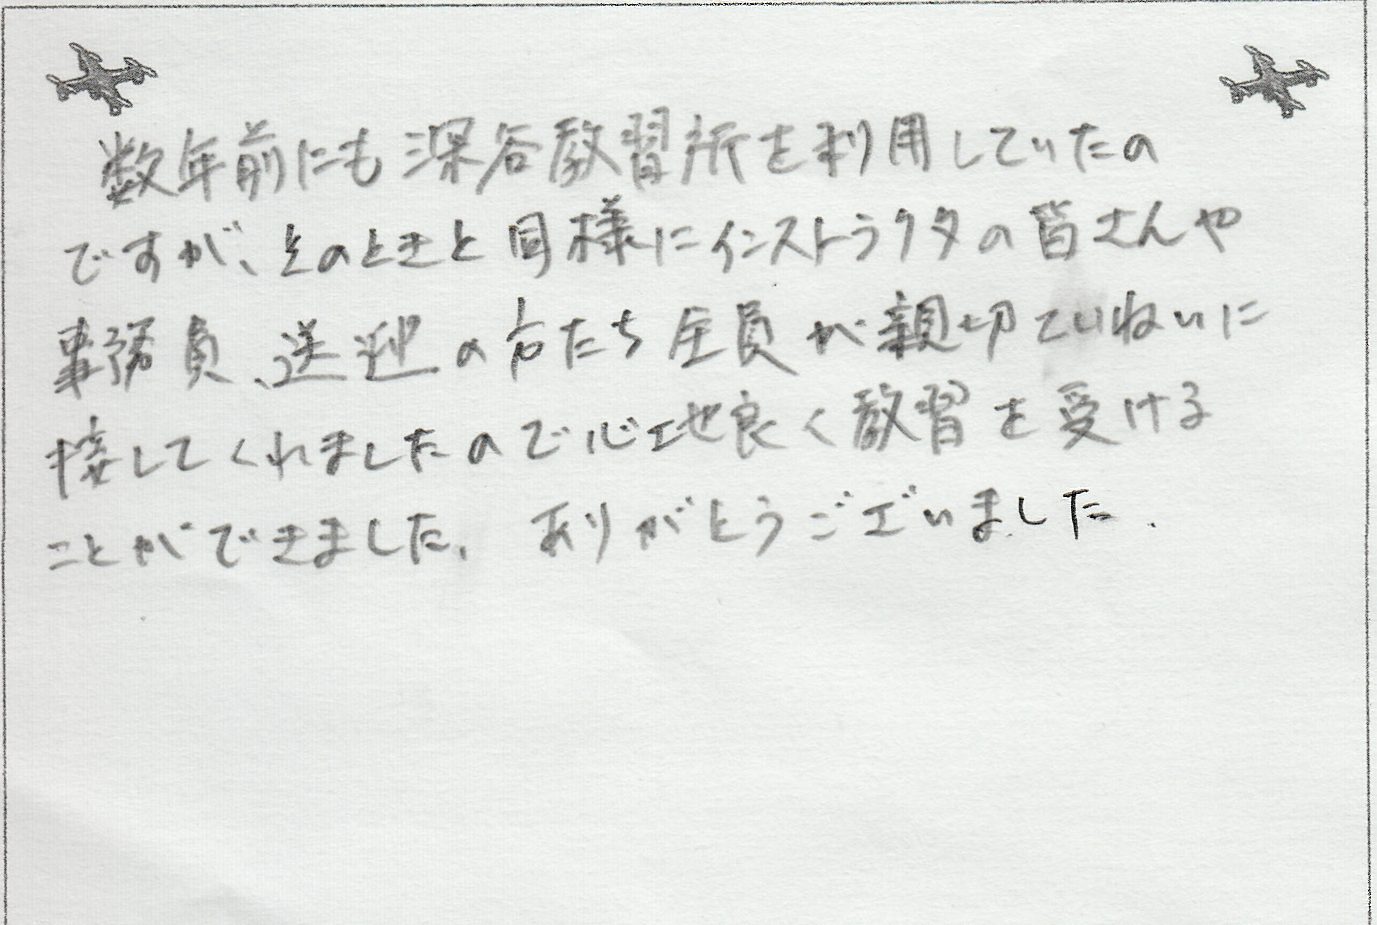 数年前にも深谷教習所を利用していたの
ですが、そのときと同様にインストラクタの皆さんや
事務員、送迎の方たち全員が親切ていねいに
接してくれましたので心地良く教習を受ける
ことができました。ありがとうございました。